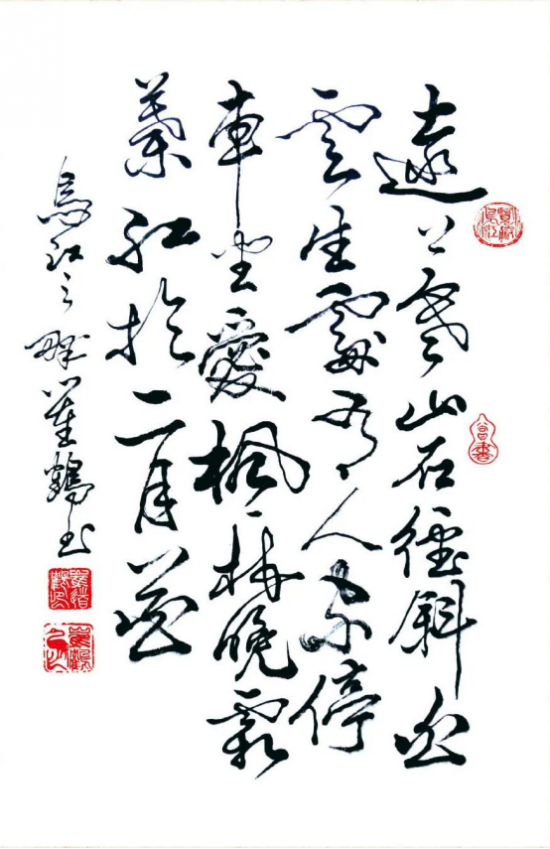 遠上寒山石徑斜白
雲生處有人家停
車坐愛楓林晚霜
葉紅於二月花
烏江之畔鶴书